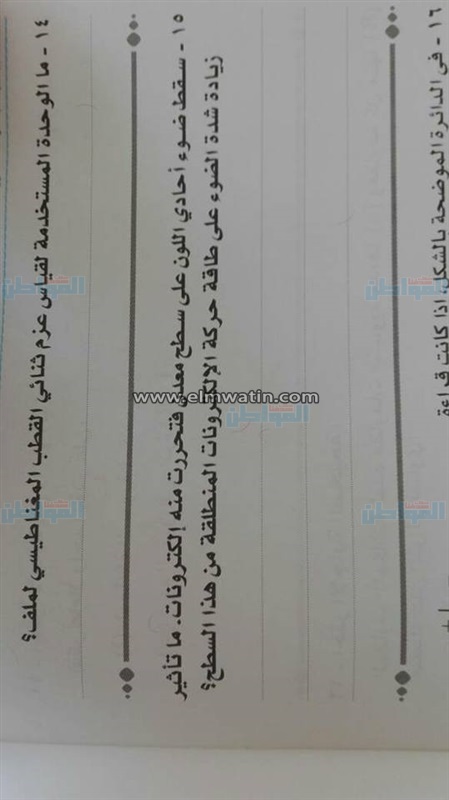 ١٤ - ما الوحدة المستخدمة لقياس عزم ثنائي القطب المغناطيسي لملف؟
١٥ - سقط ضوء أحادي اللون على سطح معدني فتحررت منه إلكترونات. ما تأثير
زيادة شدة الضوء على طاقة حركة الإلكترونات المنطلقة من هذا السطح؟
١٦ - في الدائرة الموضحة بالشكل، إذا كانت قراءة
www.elmwatin.com
المواطن
المواطن
المواطن
المواطن
المواطن